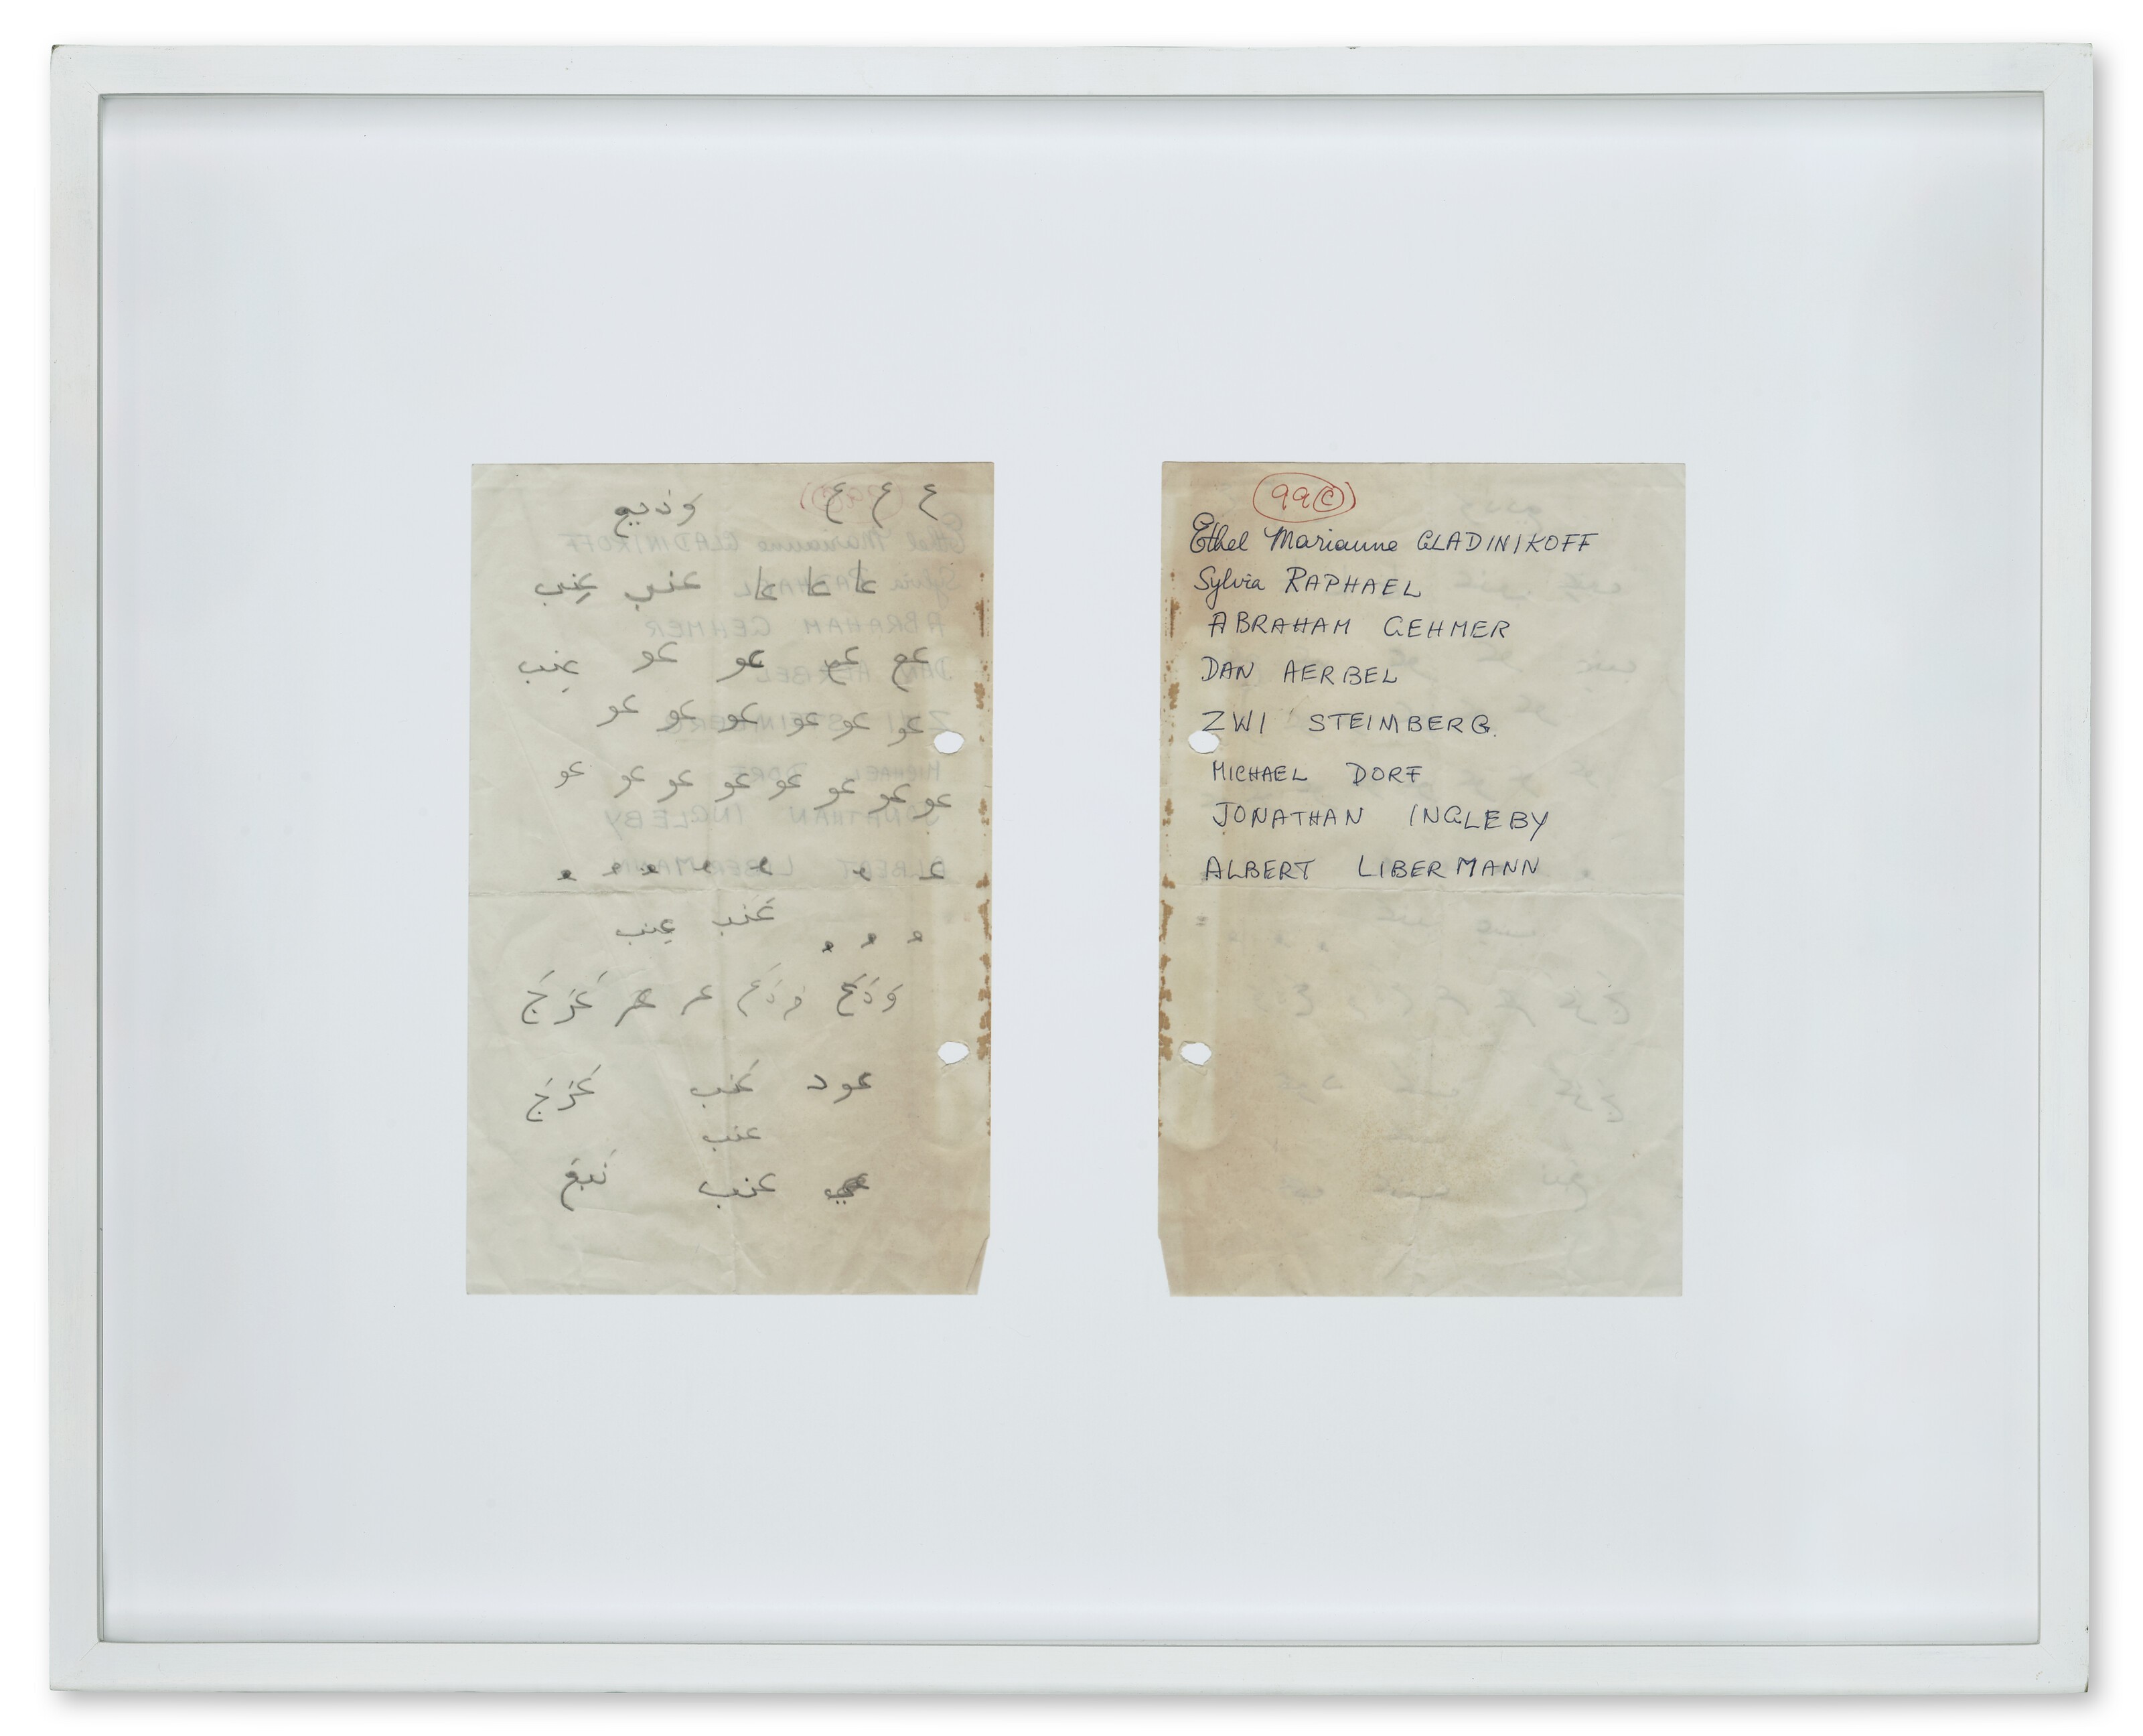 ع ع ع وديع
عا عا عا عنب عنب
عو عو عو عنب
عو عو عو عو عو عو
عو عو عو عو عو عو عو عو
عنب عنب
عود عنب
عنب
عنب نبع
99 C
Ethel Marianne GLADINIKOFF
Sylvia RAPHAEL
ABRAHAM GEHMER
DAN AERBEL
ZWI STEIMBERG.
MICHAEL DORF
JONATHAN INGLEBY
ALBERT LIBERMANN